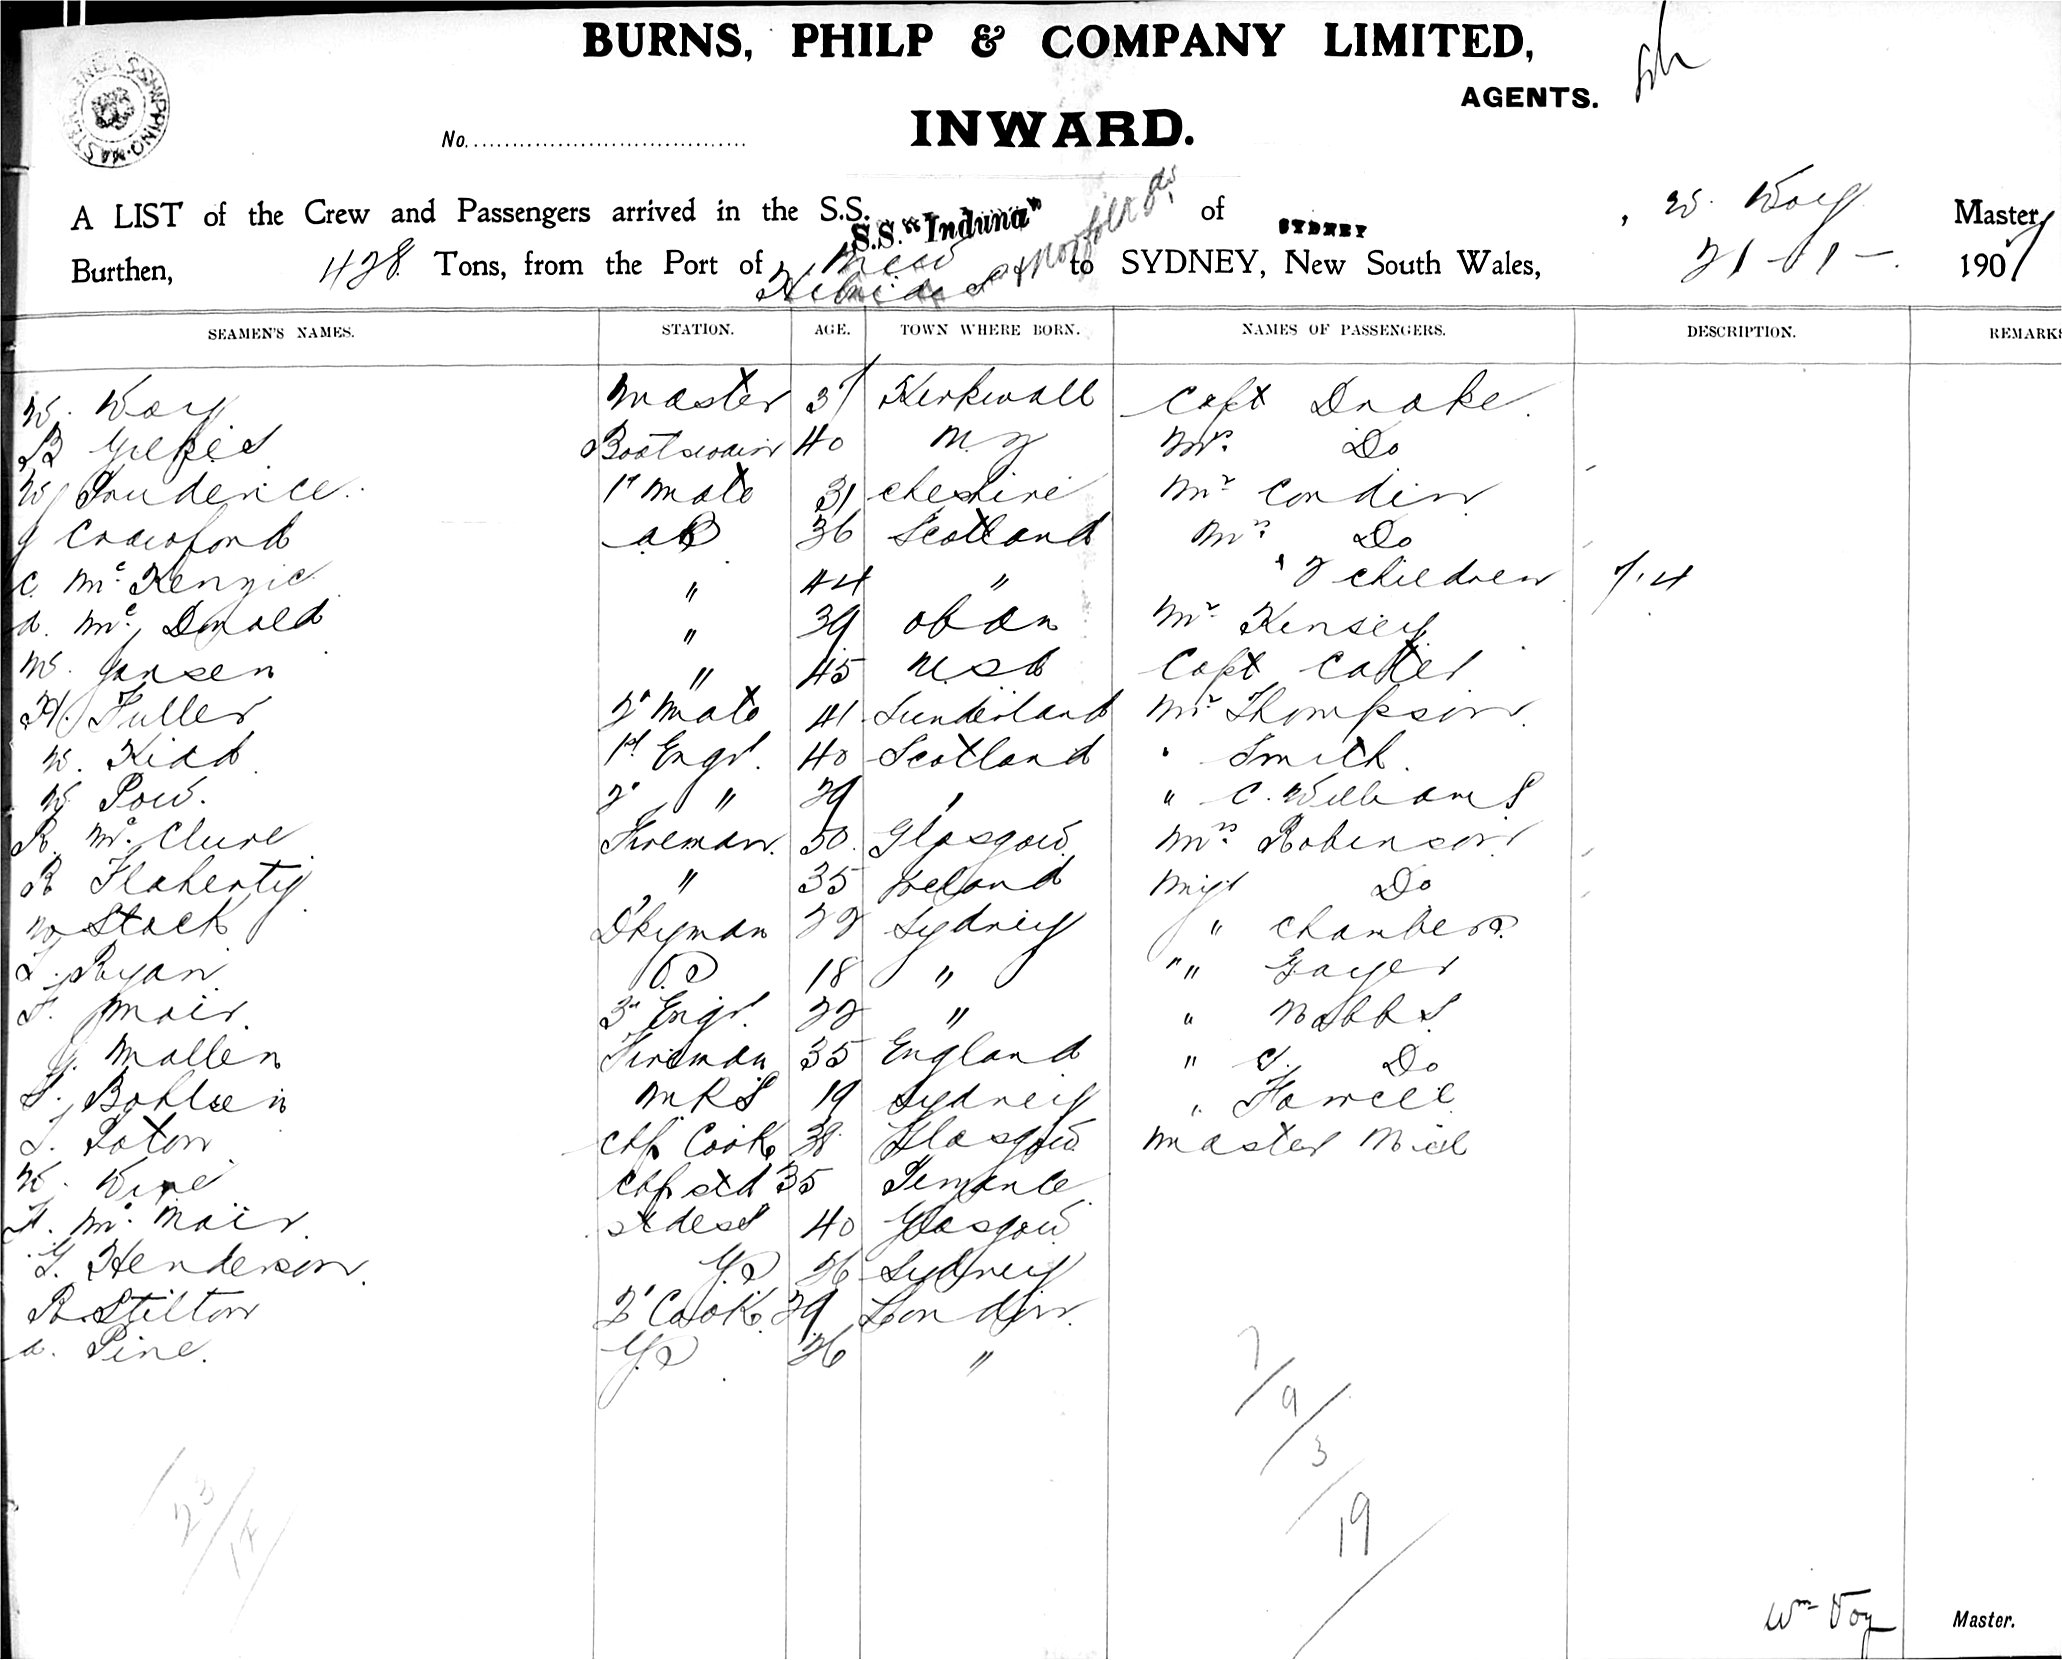 BURNS, PHILP & COMPANY LIMITED,
AGENTS.
No.
INWARD.
A LIST of the Crew and Passengers arrived in the S.S. S.S. "Induna" of SYDNEY, W. Voy Master,
Burthen, 428 Tons, from the Port of New Hebrides & Norfolk Is to SYDNEY, New South Wales, 21-1-1907
SEAMEN'S NAMES. STATION. AGE. TOWN WHERE BORN. NAMES OF PASSENGERS. DESCRIPTION. REMARKS
W. Voy Master 37 Kirkwall Capt Drake
B Gillies Boatswain 40 N.Z Mrs. Do
W Prudence 1st Mate 31 Cheshire Mr Condin
J Crawford AB 36 Scotland Mrs Do
C. Mc.Kenzie " 44 " " 2 Children 7.4
A. Mc. Donald " 39 Oban Mr Kensey
W. Jansen " 45 USA Capt Catter
H. Fuller 2d Mate 41 Sunderland Mr Thompson
W. Kidd 1st Engr. 40 Scotland " Smith
W Pow. 2d " 29 " " C. Williams
R. Mc.Clure Fireman 50 Glasgow Mrs. Robinson
R Flaherty " 35 Ireland Miss Do
W Stack D'kyman 22 Sydney " Chambers
T. Ryan OS 18 " " " Gayer
F. Mair 3rd Engr. 22 " " Nobbs
J. Mallen Fireman 35 England " S. Do
S. Bohlsen MRS 19 Sydney " Farrell
T. Paton Chf Cook 38 Glasgow Master Nid
W. Chf Std 35 Penance
H. Mc. Mair Stdess 40 Glasgow
G. Henderson GS 26 Sydney
R. Stilton 2d Cook 29 London
A. Pine. GS 26 "
7
9
3
19
23
14
Wm Voy Master.